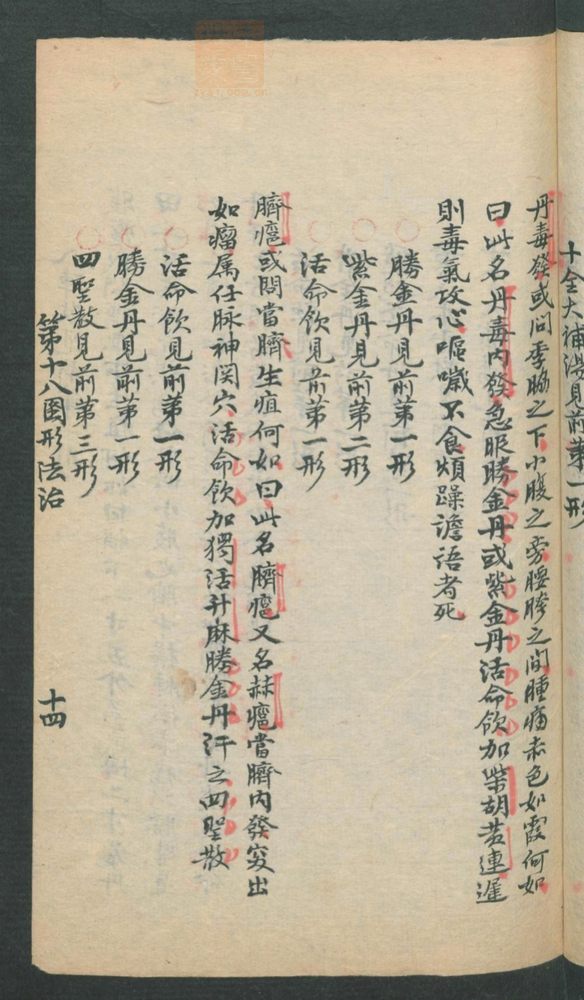 十全大補湯見前第一形
丹毒發或问季脇之下小腹之旁腰胯之间腫痛赤色如霞何如
曰此名丹毒内發急服勝金丹或紫金丹活命飲加柴胡黄連遲
則毒氣攻心嘔噦不食煩躁譫语者死
勝金丹見前第一形
紫金丹見前第二形
活命飲見前第一形
臍癰或問當臍生疽何如曰此名臍癰又名赫癰當臍内發突出
如瘤属任脉神関穴活命飲加獨活升麻勝金丹汗之四聖散
活命飲見前第一形
勝金丹見前第一形
四聖散見前第三形
第十八圖形法治
十四